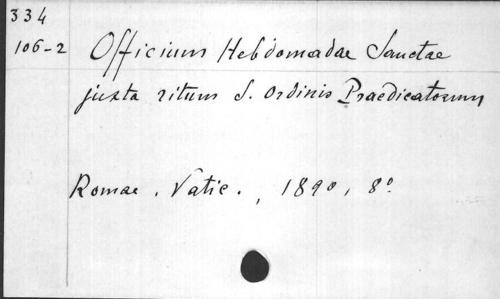 334
106-2
Officium Hebdomadae Sanctae
juxta ritum S. Ordinis Praedicatorum
Romae. Vatic., 1890, 8º